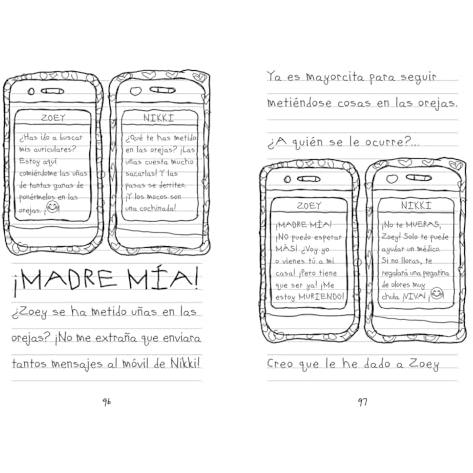 ZOEY
¿Has ido a buscar
mis auriculares?
Estoy aquí
comiéndome las uñas
de tantas ganas de
ponérmelos en las
orejas. ¡
NIKKI
¿Qué te has metido
en las orejas? ¡Las
uñas cuesta mucho
sacarlas! Y las
pasas se derriten.
¡Y los mocos son
una cochinada!
¡MADRE MÍA!
¿Zoey se ha metido uñas en las
orejas? ¡No me extraña que enviara
tantos mensajes al móvil de Nikki!
96
Ya es mayorcita para seguir
metiéndose cosas en las orejas.
¿A quién se le ocurre?...
ZOEY
¡MADRE MÍA!
¡No puedo esperar
MÁS! ¿Voy yo
o vienes tú a mi
casa? ¡Pero tiene
que ser ya! ¡Me
estoy MURIENDO!
NIKKI
¡No te MUERAS,
Zoey! Solo te puede
ayudar un médico.
Si no lloras, te
regalará una pegatina
de olores muy
chula. ¡VIVA!
Creo que le he dado a Zoey
97